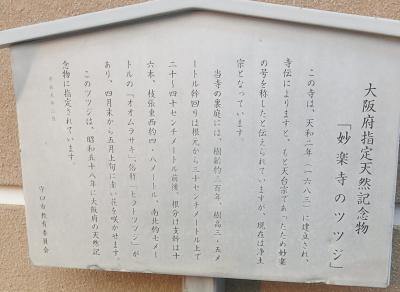 大阪府指定天然記念物
「妙楽寺のツツジ」
この寺は、天和二年(一六八三)に建立され、
寺伝によりますと、もと天台宗であったため妙楽
の号を称したと伝えられていますが、現在は浄土
宗となっています。
当寺の裏庭には、樹齢約三百年、樹高三・五メ
ートル幹回りは根元から三十センチメートル上で
二十～四十センチメートル前後、根分け支幹は十
六本、枝張東西約四・八メートル、南北約七メー
トルの「オオムラサキ」（俗称「ヒラトツツジ」が
あり、四月末から五月上旬に赤い花を咲かせます。
このツツジは、昭和五十八年に大阪府の天然記
念物に指定されています。
守口市教育委員会